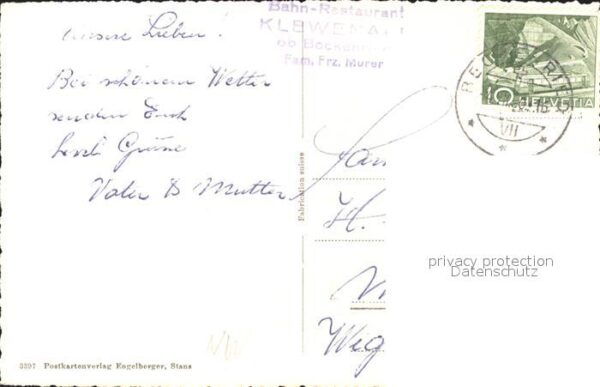 Unsere Lieben!
Bei schönem Wetter
senden Euch
herzl. Grüsse
Vater & Mutter
Bahn-Restaurant
KLEWENA
ob Beckenried
Fam. Frz. Murer
10
HELVETIA
VII
Fam
H.
Weg
Fabrication suisse
privacy protection
Datenschutz
3397 Postkartenverlag Engelberger, Stans